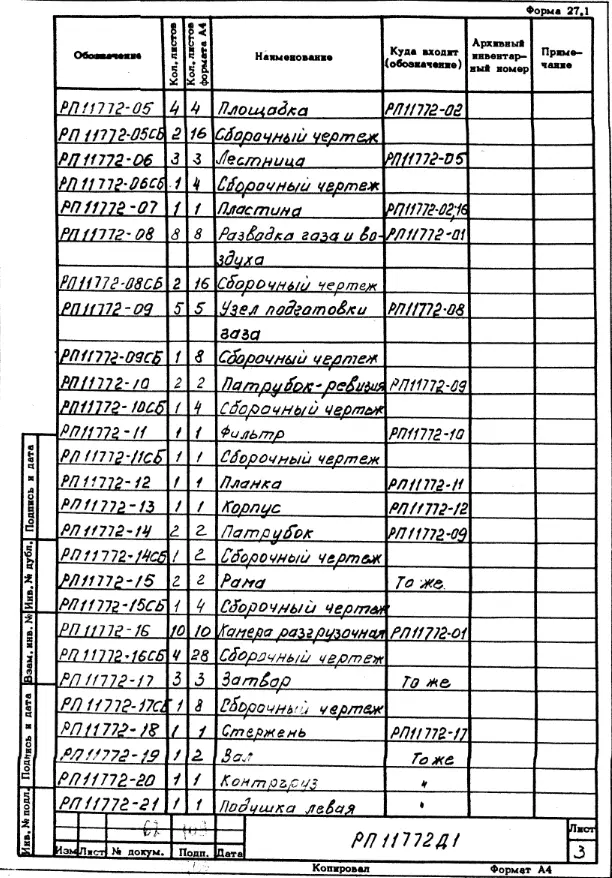 Форма 27,1
Обозначение Кол. листов Кол. листов формата А4 Наименование Куда входит (обозначение) Архивный инвентар-ный номер Приме-чание
РП11772-05 4 4 Площадка РП11772-02
РП11772-05СБ 2 16 Сборочный чертеж
РП11772-06 3 3 Лестница РП11772-05
РП11772-06СБ 1 4 Сборочный чертеж
РП11772-07 1 1 Пластина РП11772-02;16
РП11772-08 8 8 Разводка газа и во- РП11772-01
здуха
РП11772-08СБ 2 16 Сборочный чертеж
РП11772-09 5 5 Узел подготовки РП11772-08
газа
РП11772-09СБ 1 8 Сборочный чертеж
РП11772-10 2 2 Патрубок-ревизия РП11772-09
РП11772-10СБ 1 4 Сборочный чертеж
РП11772-11 1 1 Фильтр РП11772-10
РП11772-11СБ 1 1 Сборочный чертеж
РП11772-12 1 1 Планка РП11772-11
РП11772-13 1 1 Корпус РП11772-12
РП11772-14 2 2 Патрубок РП11772-09
РП11772-14СБ 1 2 Сборочный чертеж
РП11772-15 2 2 Рама То же.
РП11772-15СБ 1 4 Сборочный чертеж
РП11772-16 10 10 Камера разгрузочная РП11772-01
РП11772-16СБ 4 28 Сборочный чертеж
РП11772-17 3 3 Затвор То же
РП11772-17СБ 1 8 Сборочный чертеж
РП11772-18 1 1 Стержень РП11772-17
РП11772-19 1 2 Вал То же
РП11772-20 1 1 Контргруз "
РП11772-21 1 1 Подушка левая "
Подпись и дата
Инв. № дубл.
Взам. инв. №
Подпись и дата
Инв. № подл.
Изм Лист № докум. Подп. Дата
РП11772Д1
Лист
3
Копировал Формат А4